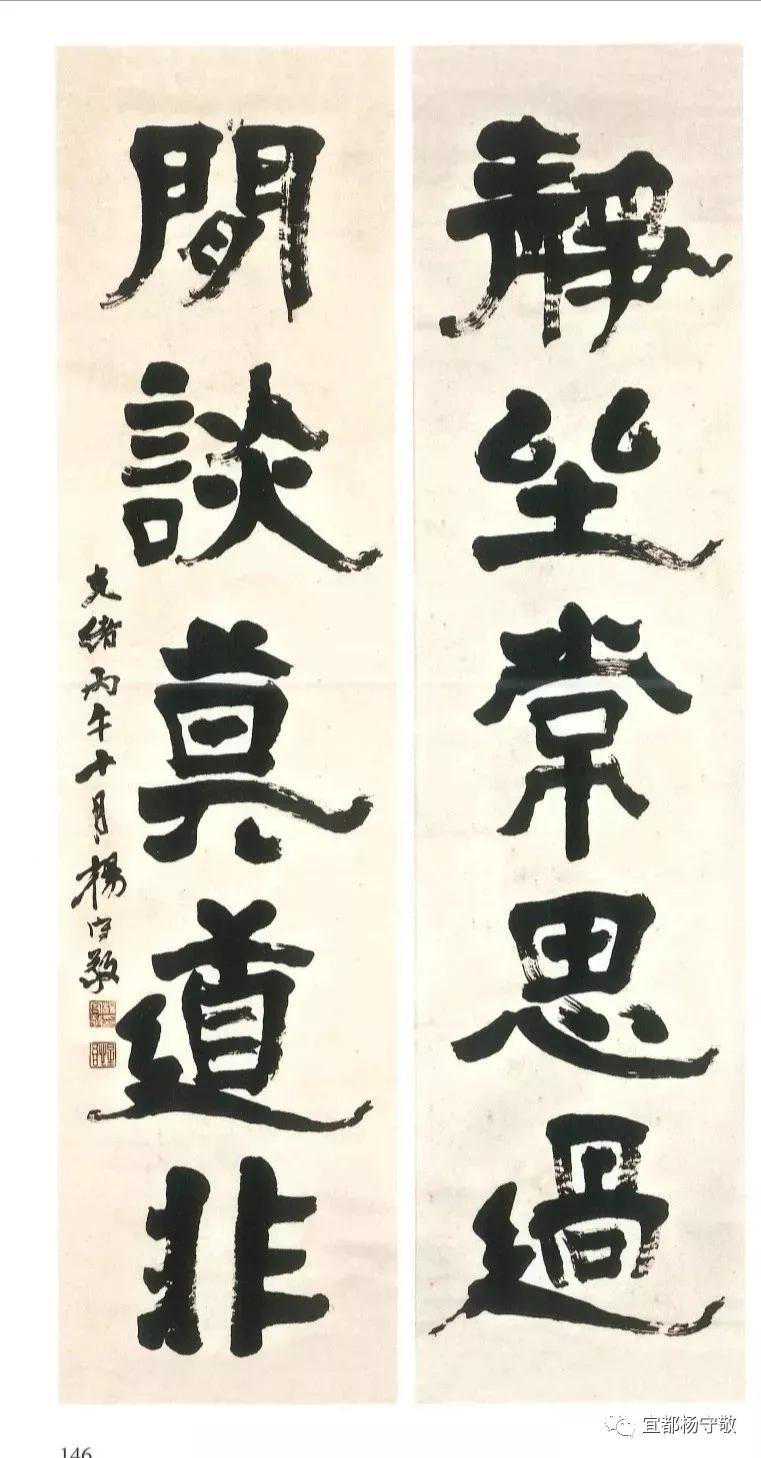 靜坐常思過
閒談莫道非
光緒丙午十月楊守敬
宜都杨守敬
146